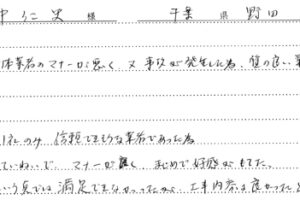 中 仁 史 様 千葉 県 野田
体業者のマナーが悪く 又 事故が発生した為、質の良い業
1社のみ 信頼できそうな業者であった為
ていねいで、マナーが良く、まじめで好感がもてた。
いう点では満足できなかったが、工事内容は良かったと